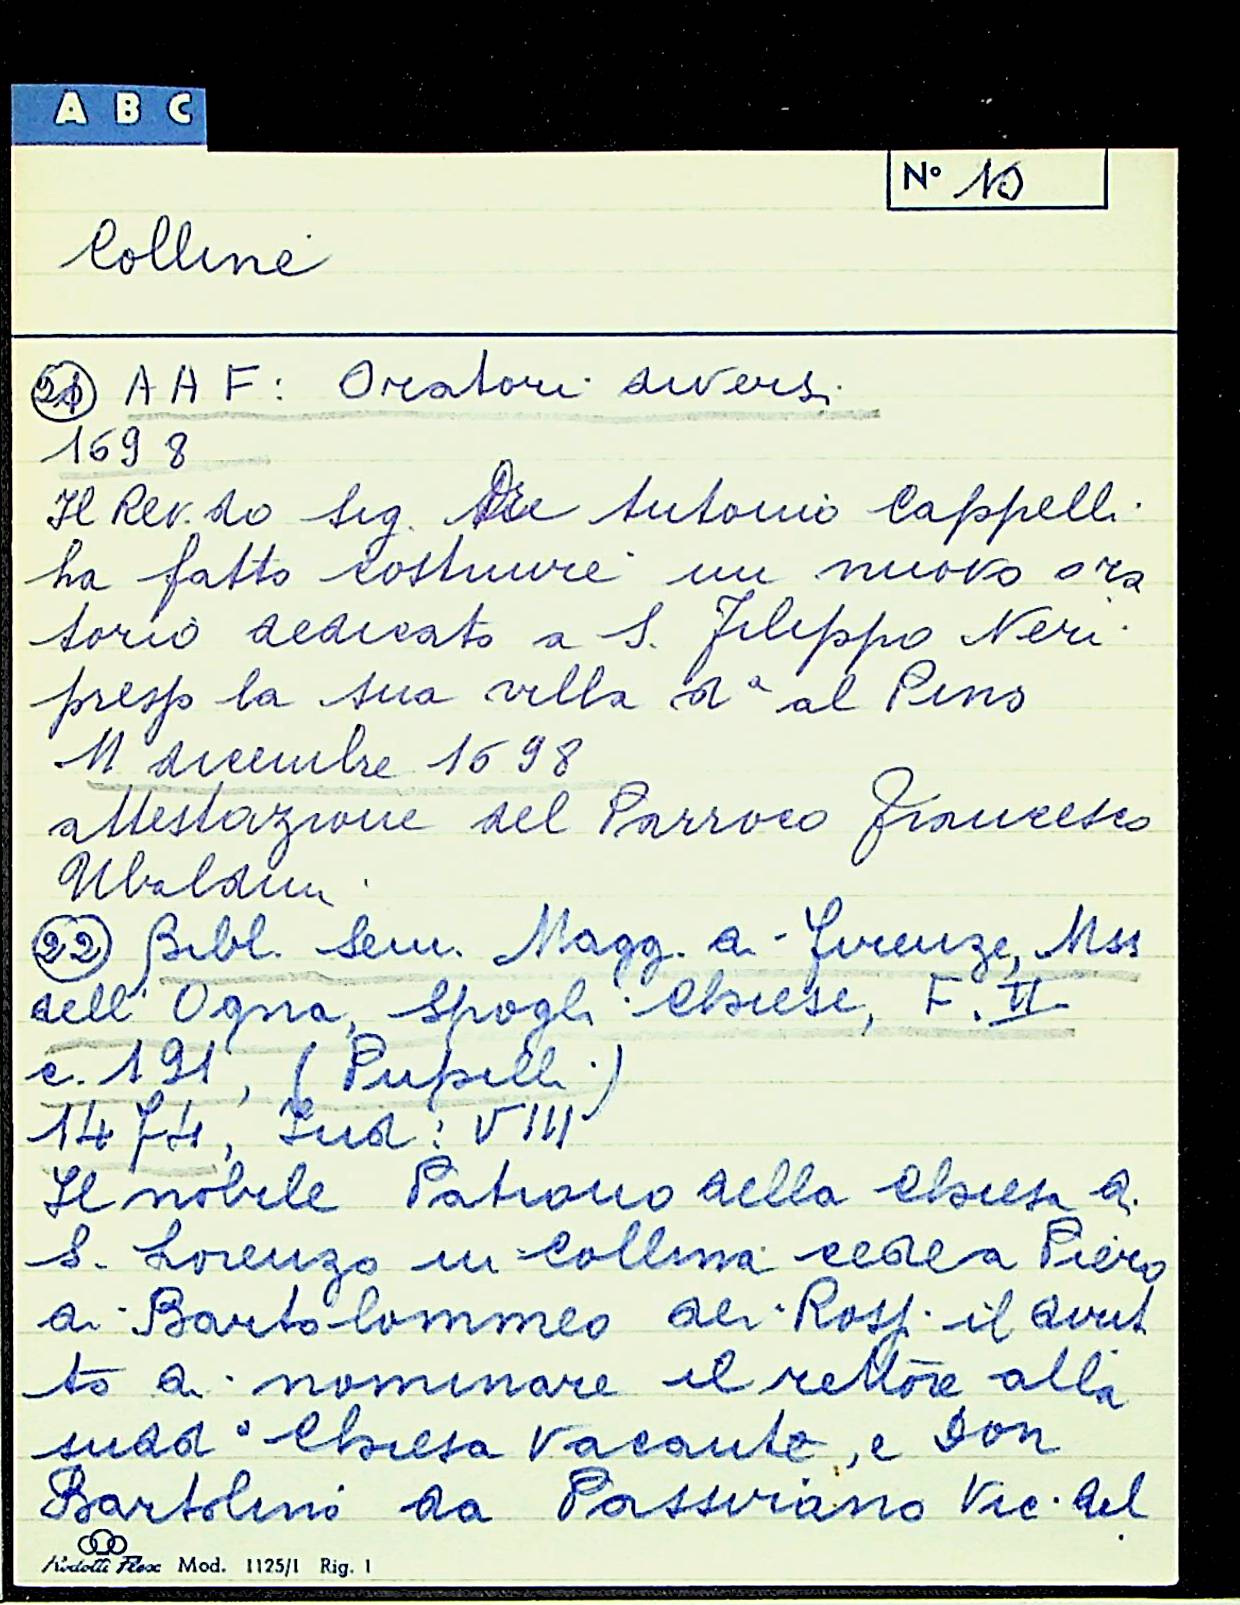 A B C
N° 10
Colline
21 A A F: Oratori diversi
1698
Il Rev.do Sig. Antonio Cappelli
ha fatto costruire un nuovo ora
torio dedicato a S. Filippo Neri
presso la sua villa da al Pino
11 dicembre 1698
attestazione del Parroco Francesco
Ubaldini
22 Bibl. Sem. Magg. di Firenze, Mss
dell'Ogna, Spogli Chiese, F. II
c. 191, (Pupilli)
1474, Ind: VIII
Il nobile Patrono della Chiesa di
S. Lorenzo in Collina cede a Piero
di Bartolommeo dei Rossi il dirit
to di nominare il rettore alla
sudda Chiesa vacante, e Don
Bartolino da Passiriano Vic. del
Mod. 1125/1 Rig. 1